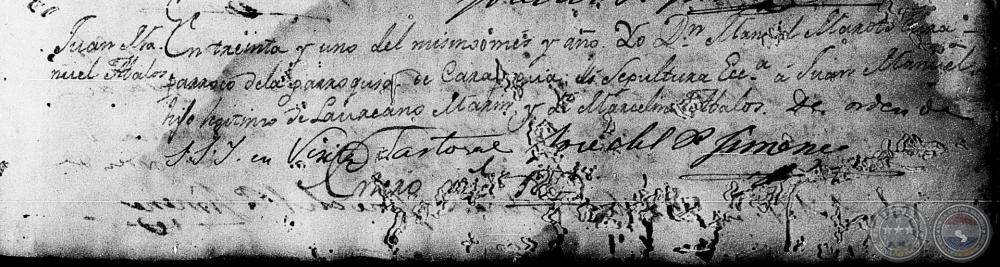 Juan Ma
nuel Abalos
En treinta y uno del mismo mes y año. Yo Dn Manuel Maroto Cura
parroco de la parroquia de Cara di Sepultura Ecca á Juan Manuel
hijo lexitimo de Laureano Marin y de Marcelina Abalos. De orden de
S.S.I. en Visita Pastoral José del P. Gimenez
Enero